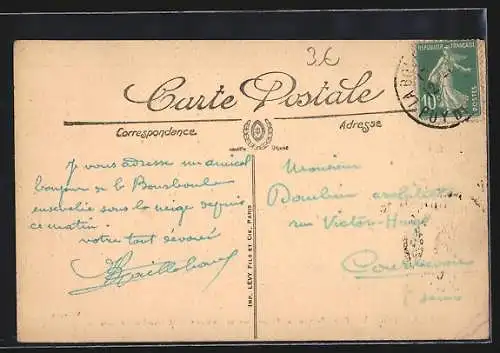 3€
REPUBLIQUE FRANÇAISE
10
POSTES
LA BO
PUY DE
Carte Postale
Correspondence
Adresse
Je vous adresse un amical
bonjour de la Bourboule
ensevelie sous la neige depuis
ce matin.
votre tout dévoué
Monsieur
architecte
rue Victor-Hugo
Courbevoie
Seine
IMP. LÉVY FILS ET CIE, PARIS